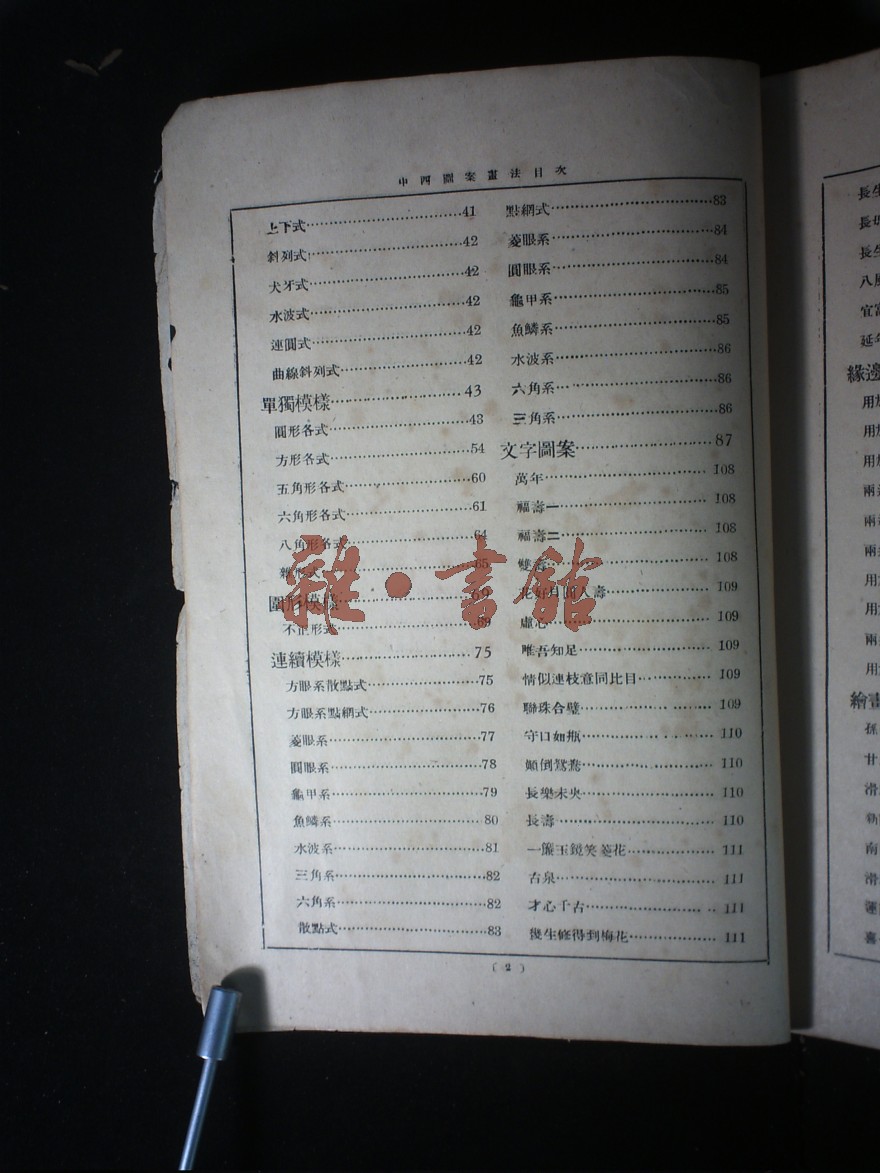 中西圖案畫法目次
上下式 41
斜列式 42
犬牙式 42
水波式 42
連圓式 42
曲線斜列式 42
單獨模樣 43
圓形各式 43
方形各式 54
五角形各式 60
六角形各式 61
八角形各式 64
雜形式 65
圍形模樣 69
不正形式 69
連續模樣 75
方眼系散點式 75
方眼系點網式 76
菱眼系 77
圓眼系 78
龜甲系 79
魚鱗系 80
水波系 81
三角系 82
六角系 82
散點式 83
點網式 83
菱眼系 84
圓眼系 84
龜甲系 85
魚鱗系 85
水波系 86
六角系 86
三角系 86
文字圖案 87
萬年 108
福壽一 108
福壽二 108
雙壽 108
花好月圓人壽 109
虛心 109
唯吾知足 109
情似連枝意同比目 109
聯珠合璧 109
守口如瓶 110
顚倒鴛鴦 110
長樂未央 110
長壽 110
一簾玉鏡笑菱花 111
古泉 111
才心千古 111
幾生修得到梅花 111
(2)
雜·書館
長生
長
長生
八風
宜富
延年
緣邊
用
用
用
兩
兩
兩
用
用
兩
用
繪畫
孫
甘
滑
新
南
滑
蓮
喜